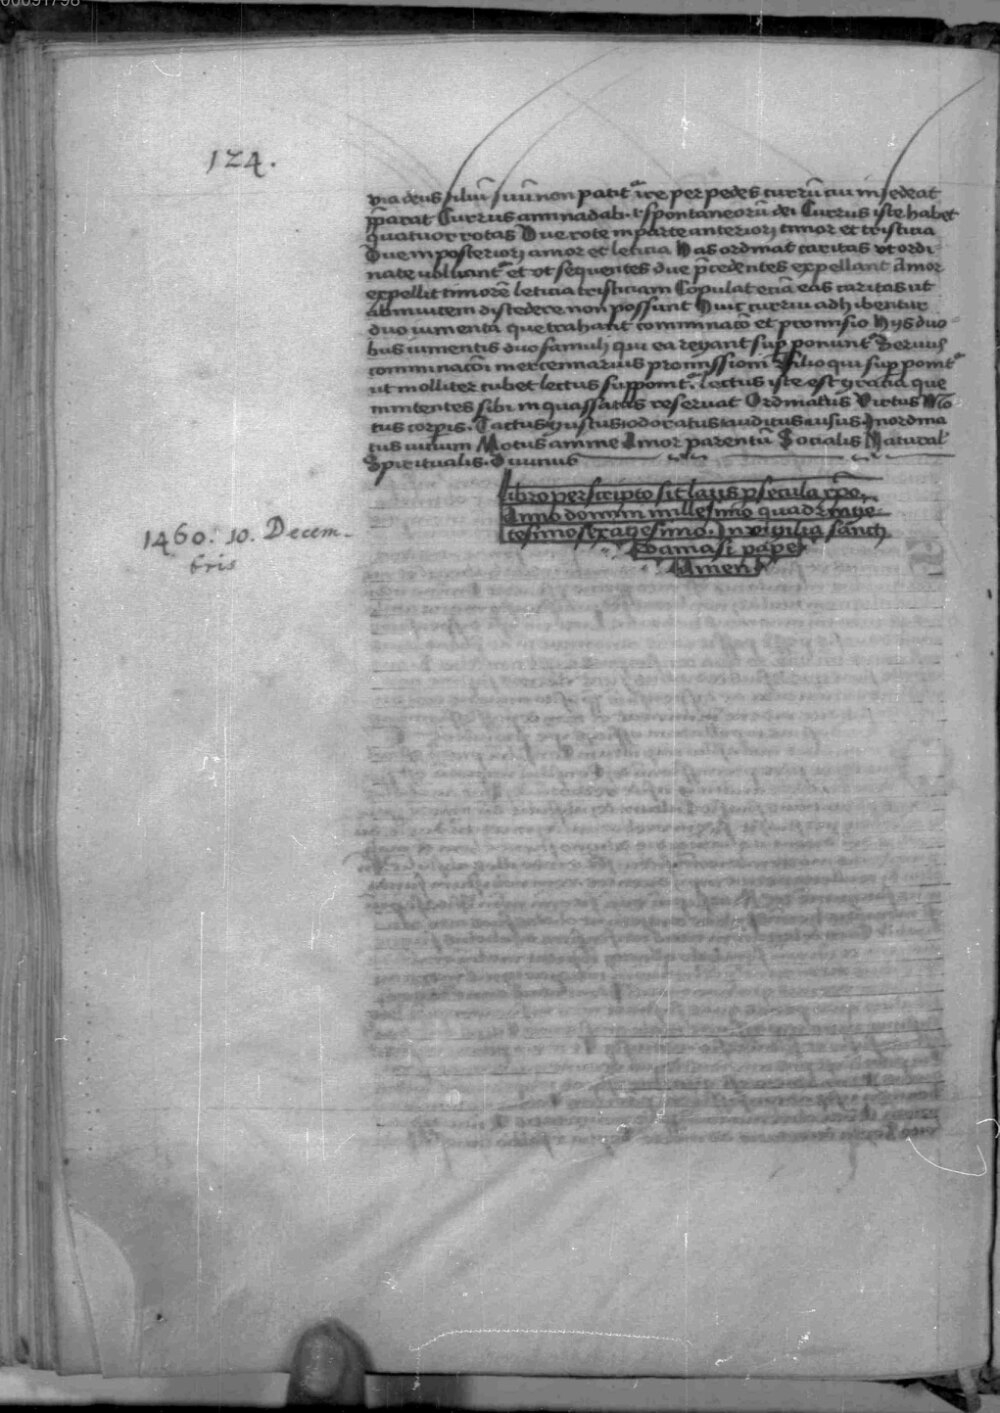 00091798
124.
via deus filiū suū non patit᷑ ire per pedes currū cui insedeat
p̄parat Currus aminadab. i. spontaneorū dei Currus iste habet
quatuor rotas Due rote in parte anteriori timor et tristicia
Due in posteriori amor et leticia Has ordinat caritas vt ordi
nate voluant᷑ et vt sequentes due p̄cedentes expellant Amor
expellit timorē leticia tristiciam Copulat eciā eas caritas ut
abinuicem discedere non possunt Huic currui adhibentur
duo iumenta que trahant comminacō et promisio Hijs duo
bus iumentis duo famuli qui ea regant sup̱ponunt᷑ Seruus
comminacōi mercennarius promissioni Filio qui sup̱ponit᷑
ut molliter cubet lectus supponit᷑. Lectus iste est gracia que
innitentes sibi inquassatas reseruat Ordinatus Virtus Mō
tus corpis. Tactus gustus odoratus auditus uisus Inordina
tus uicium Motus anime Amor parentū Socialis Natural'
Spiritualis. Diuinus
Libro perscripto sit laus p̱ secula xp̄o.
Anno domini millesimo quadringe
tesimo sexagesimo. In vigilia sancti
Damasi pape
Amen
1460. 10. Decem.
bris